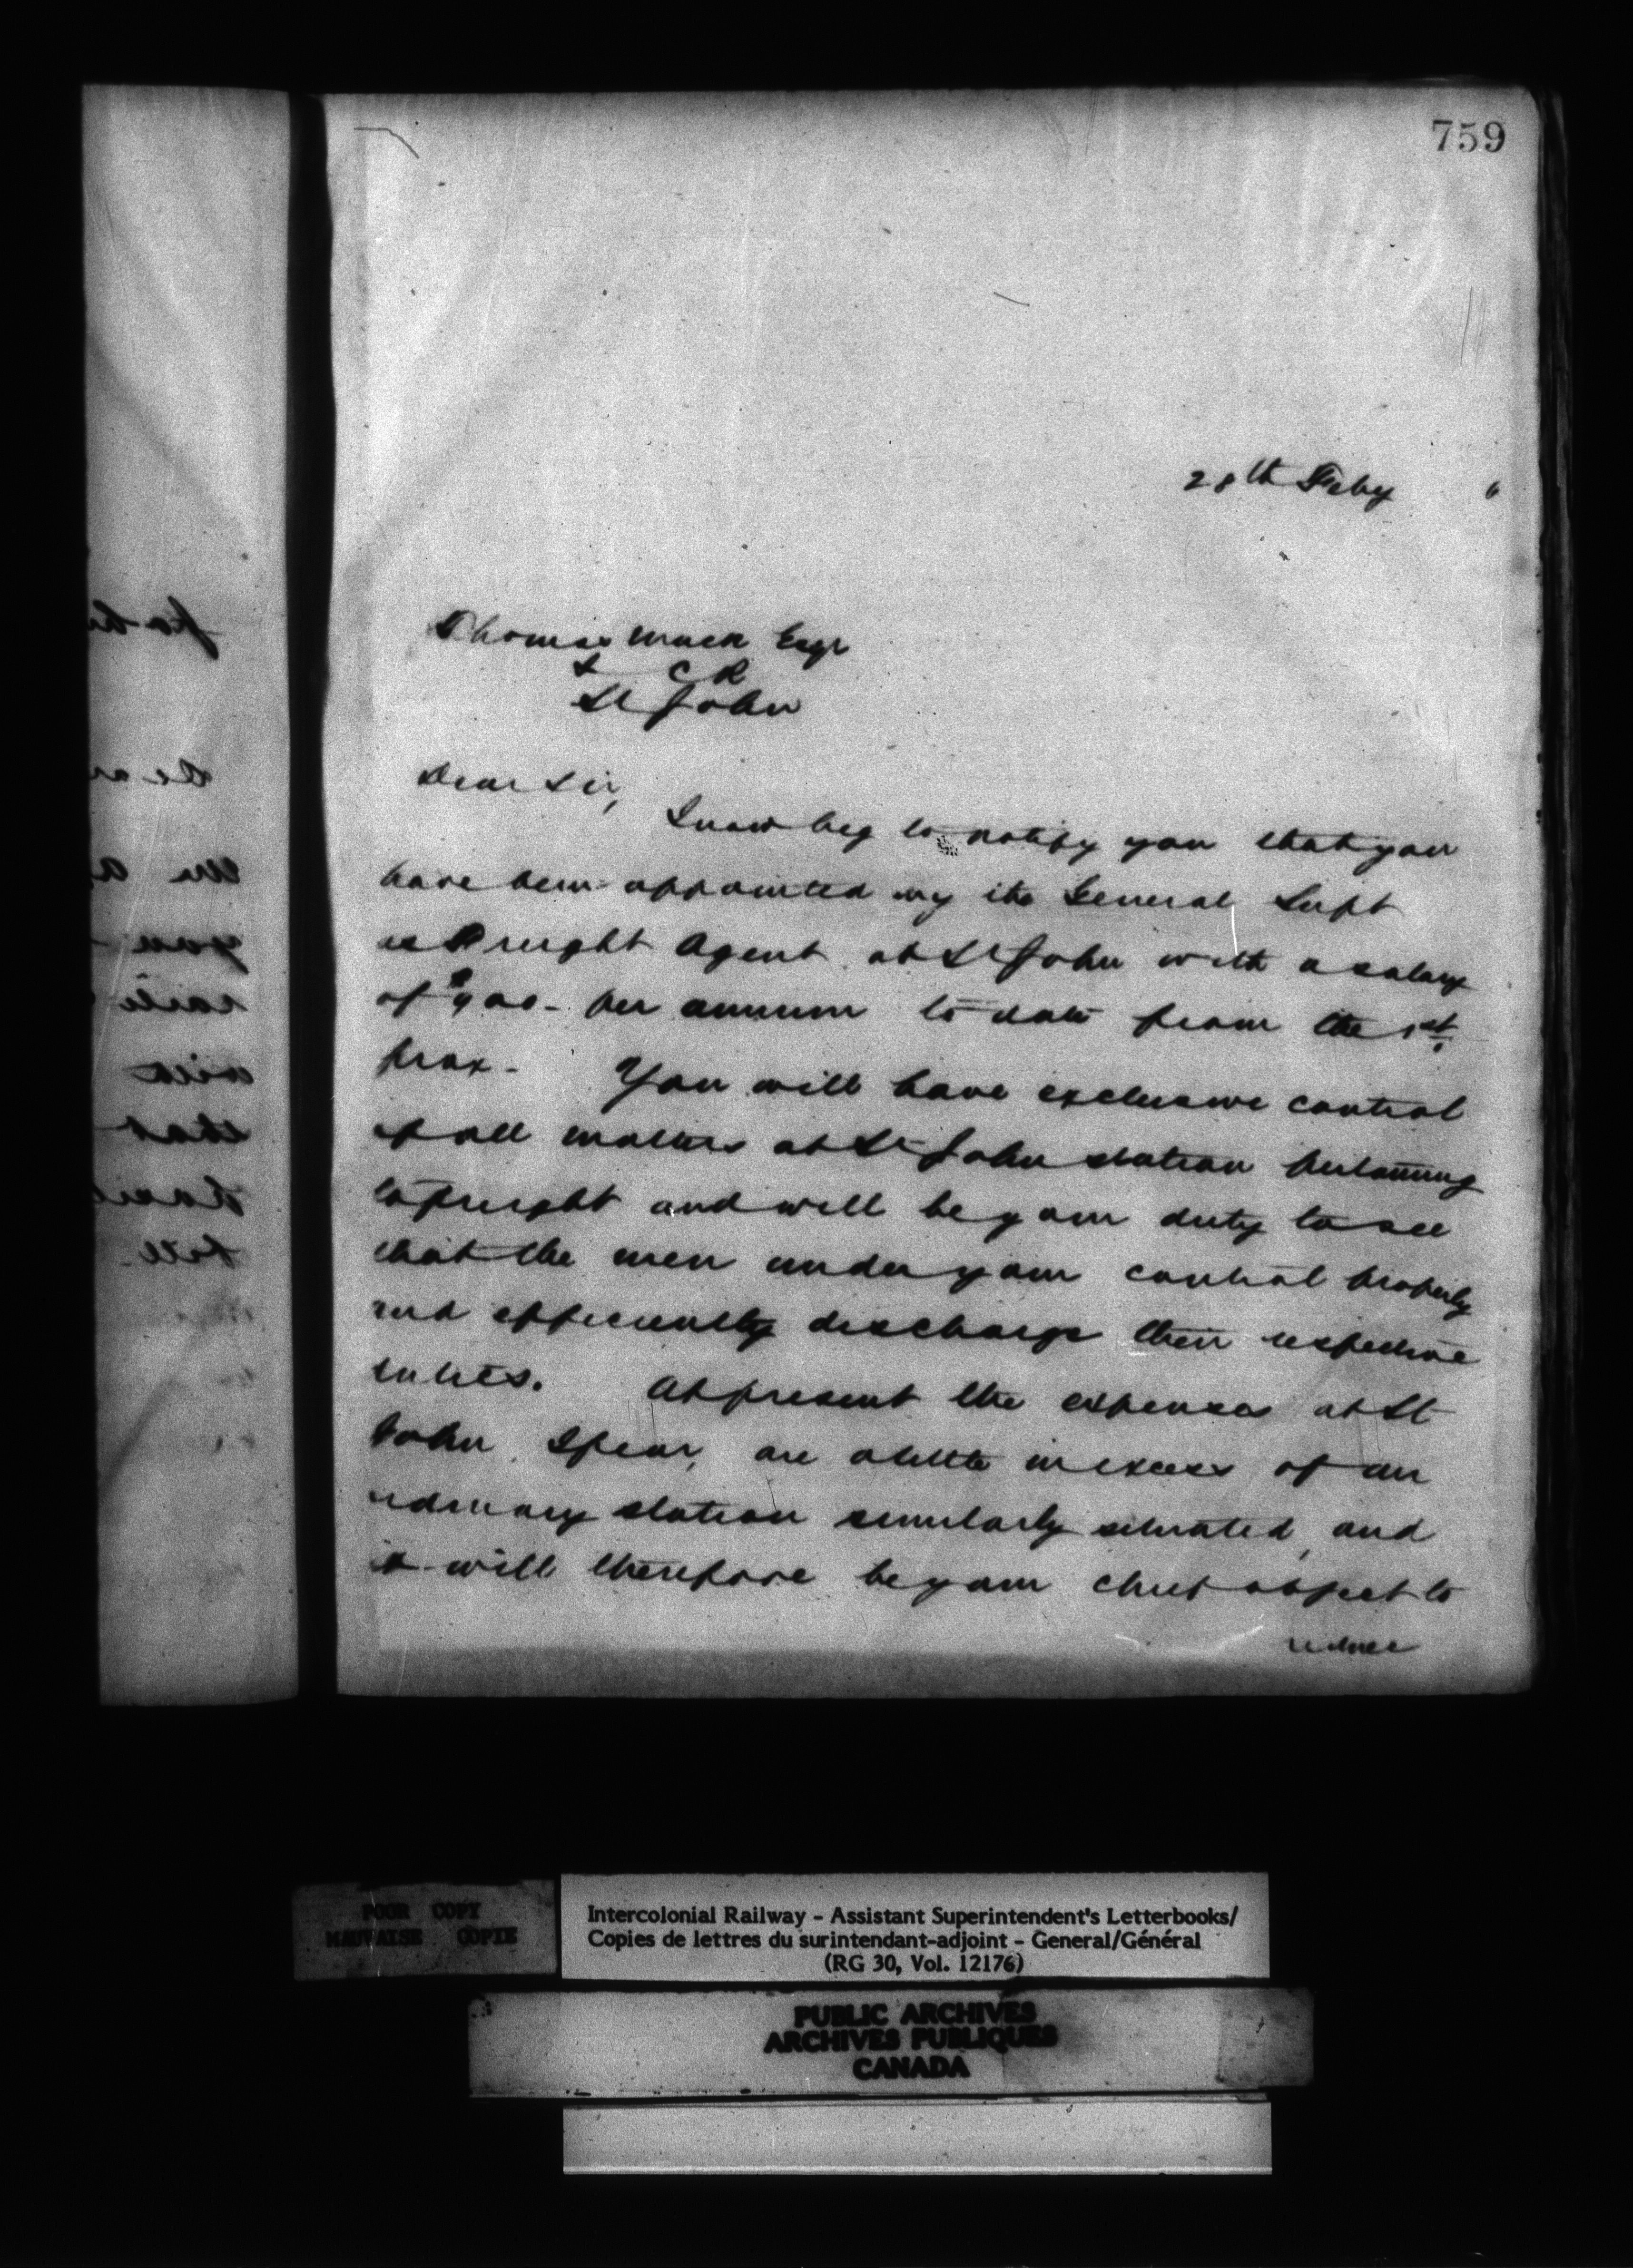 759
28th Feby "
Thomas Mack Esqr
I C R
St John
Dear Sir,
I now beg to notify you that you
have been appointed by the General Supt
as Freight Agent at St John with a salary
of $900- per annum to date from the 1st
prox- You will have exclusive control
of all matters at St John station pertaining
to freight and will be your duty to see
that the men under your control properly
and efficiently discharge their respective
duties. At present the expenses at St
John, I fear, are a little in excess of an
ordinary station similarly situated, and
it will therefore be your chief object to
reduce
POOR COPY
MAUVAISE COPIE
Intercolonial Railway - Assistant Superintendent's Letterbooks/
Copies de lettres du surintendant-adjoint - General/Général
(RG 30, Vol. 12176)
PUBLIC ARCHIVES
ARCHIVES PUBLIQUES
CANADA